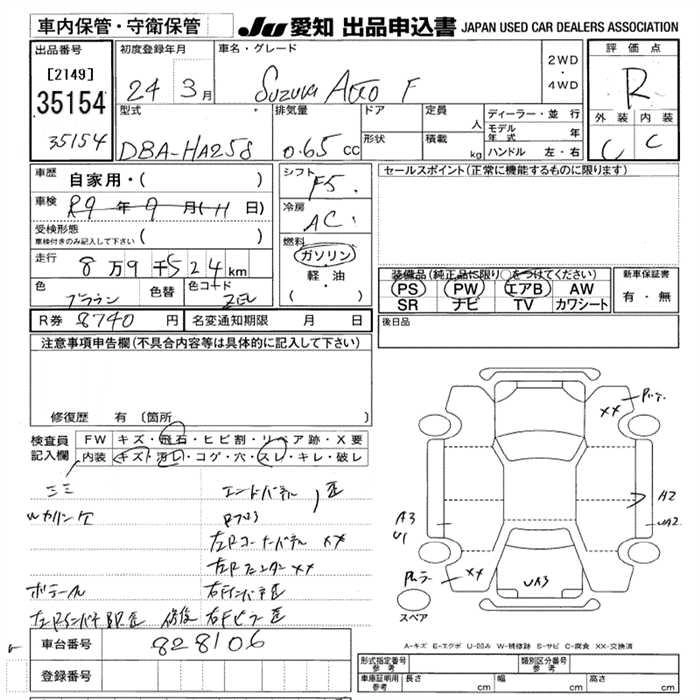 車内保管・守衛保管
JU 愛知 出品申込書 JAPAN USED CAR DEALERS ASSOCIATION
出品番号
[2149]
35154
35154
初度登録年月
24 3月
車名・グレード
Suzuki Alto F
2WD
・
4WD
評価点
R
外装 内装
C C
型式
DBA-HA25S
排気量
0.65 cc
ドア
形状
定員
人
積載
kg
ディーラー・並行
モデル年式 年
ハンドル 左・右
車歴
自家用・( )
車検
R9年9月(11日)
受検形態
車検付きのみ記入して下さい ( )
走行
8万9千524km
色
ブラウン
色替
色コード
ZEL
R券 8740 円
名変通知期限 月 日
シフト
F5.
冷房
AC.
燃料
ガソリン
軽・油
( ・ )
セールスポイント(正常に機能するものに限ります)
装備品(純正品に限り○をつけてください)
PS PW エアB AW
SR ナビ TV カワシート
新車保証書
有・無
後日品
注意事項申告欄(不具合内容等は具体的に記入して下さい)
修復歴 有 (箇所 )
検査員
記入欄
FW キズ・飛石・ヒビ割・リペア跡・X要
内装 キズ・汚レ・コゲ・穴・スレ・キレ・破レ
エンドパネル
左Rコーナーパネル XX
左Rフェンダー XX
XX
A2
UA2
A3
U1
XX
UA3
スペア
A-キズ E-エクボ U-凹み W-補修跡 S-サビ C-腐食 XX-交換済
車台番号
828106
登録番号
形式指定番号
参考
類別区分番号
参考
車庫証明用
参考
長さ cm 幅 cm 高さ cm